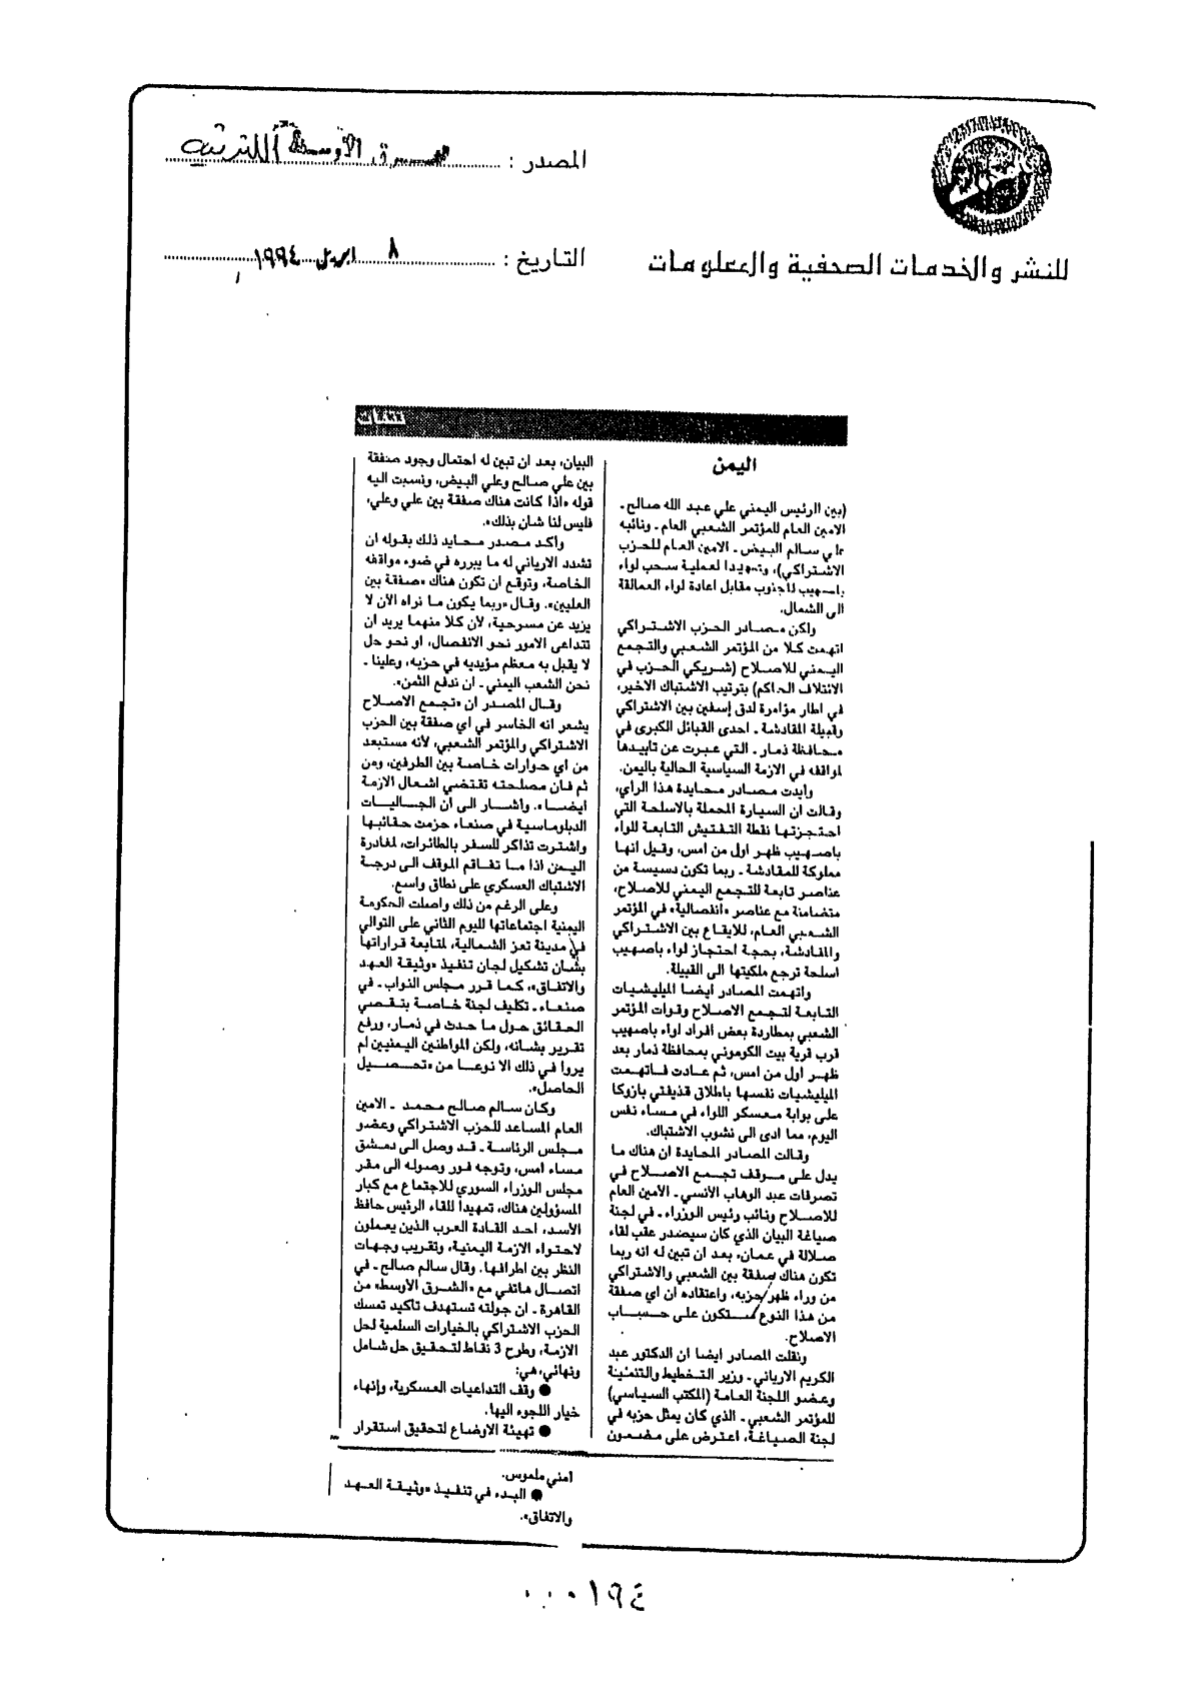 المصدر : الشرق الأوسط اللندنية
للنشر والخدمات الصحفية والمعلومات
التاريخ : ٨ ابريل ١٩٩٤
تتمات
اليمن
(بين الرئيس اليمني علي عبد الله صالح ـ
الامين العام للمؤتمر الشعبي العام ـ ونائبه
علي سالم البيض ـ الامين العام للحزب
الاشتراكي)، وتمهيدا لعملية سحب لواء
باصهيب للجنوب مقابل اعادة لواء العمالقة
الى الشمال.
ولكن مصادر الحزب الاشتراكي
اتهمت كلا من المؤتمر الشعبي والتجمع
اليمني للاصلاح (شريكي الحزب في
الائتلاف الحاكم) بترتيب الاشتباك الاخير،
في اطار مؤامرة لدق إسفين بين الاشتراكي
وقبيلة المقادشة ـ احدى القبائل الكبرى في
محافظة ذمار ـ التي عبرت عن تاييدها
لمواقفه في الازمة السياسية الحالية باليمن.
وأيدت مصادر محايدة هذا الراي،
وقالت ان السيارة المحملة بالاسلحة التي
احتجزتها نقطة التفتيش التابعة للواء
باصهيب ظهر اول من امس، وقيل انها
مملوكة للمقادشة ـ ربما تكون دسيسة من
عناصر تابعة للتجمع اليمني للاصلاح،
متضامنة مع عناصر «انفصالية» في المؤتمر
الشعبي العام، للايقاع بين الاشتراكي
والمقادشة، بحجة احتجاز لواء باصهيب
اسلحة ترجع ملكيتها الى القبيلة.
واتهمت المصادر ايضا الميليشيات
التابعة لتجمع الاصلاح وقوات المؤتمر
الشعبي بمطاردة بعض افراد لواء باصهيب
قرب قرية بيت الكوموني بمحافظة ذمار بعد
ظهر اول من امس، ثم عادت فاتهمت
الميليشيات نفسها باطلاق قذيفتي بازوكا
على بوابة معسكر اللواء في مساء نفس
اليوم، مما ادى الى نشوب الاشتباك.
وقالت المصادر المحايدة ان هناك ما
يدل على موقف تجمع الاصلاح في
تصرفات عبد الوهاب الأنسي ـ الأمين العام
للاصلاح ونائب رئيس الوزراء ـ في لجنة
صياغة البيان الذي كان سيصدر عقب لقاء
صلالة في عمان، بعد ان تبين له انه ربما
تكون هناك صفقة بين الشعبي والاشتراكي
من وراء ظهر حزبه، واعتقاده ان اي صفقة
من هذا النوع ستكون على حساب
الاصلاح.
ونقلت المصادر ايضا ان الدكتور عبد
الكريم الارياني ـ وزير التخطيط والتنمية
وعضو اللجنة العامة (المكتب السياسي)
للمؤتمر الشعبي ـ الذي كان يمثل حزبه في
لجنة الصياغة، اعترض على مضمون
البيان، بعد ان تبين له احتمال وجود صفقة
بين علي صالح وعلي البيض، ونسبت اليه
قوله «اذا كانت هناك صفقة بين علي وعلي،
فليس لنا شان بذلك».
وأكد مصدر محايد ذلك بقوله ان
تشدد الارياني له ما يبرره في ضوء مواقفه
الخاصة، وتوقع ان تكون هناك «صفقة بين
العليين». وقال «ربما يكون ما نراه الآن لا
يزيد عن مسرحية، لأن كلا منهما يريد ان
تتداعى الامور نحو الانفصال، او نحو حل
لا يقبل به معظم مؤيديه في حزبه، وعلينا ـ
نحن الشعب اليمني ـ ان ندفع الثمن».
وقال المصدر ان «تجمع الاصلاح
يشعر انه الخاسر في اي صفقة بين الحزب
الاشتراكي والمؤتمر الشعبي، لأنه مستبعد
من اي حوارات خاصة بين الطرفين، ومن
ثم فان مصلحته تقتضي اشعال الازمة
ايضا». واشار الى ان الجاليات
الدبلوماسية في صنعاء حزمت حقائبها
واشترت تذاكر للسفر بالطائرات، لمغادرة
اليمن اذا ما تفاقم الموقف الى درجة
الاشتباك العسكري على نطاق واسع.
وعلى الرغم من ذلك واصلت الحكومة
اليمنية اجتماعاتها لليوم الثاني على التوالي
في مدينة تعز الشمالية، لمتابعة قراراتها
بشأن تشكيل لجان تنفيذ «وثيقة العهد
والاتفاق»، كما قرر مجلس النواب ـ في
صنعاء ـ تكليف لجنة خاصة بتقصي
الحقائق حول ما حدث في ذمار، ورفع
تقرير بشانه، ولكن المواطنين اليمنيين لم
يروا في ذلك الا نوعا من «تحصيل
الحاصل».
وكان سالم صالح محمد ـ الامين
العام المساعد للحزب الاشتراكي وعضو
مجلس الرئاسة ـ قد وصل الى دمشق
مساء امس، وتوجه فور وصوله الى مقر
مجلس الوزراء السوري للاجتماع مع كبار
المسؤولين هناك، تمهيداً للقاء الرئيس حافظ
الأسد، احد القادة العرب الذين يعملون
لاحتواء الازمة اليمنية، وتقريب وجهات
النظر بين اطرافها. وقال سالم صالح ـ في
اتصال هاتفي مع «الشرق الأوسط» من
القاهرة ـ ان جولته تستهدف تاكيد تمسك
الحزب الاشتراكي بالخيارات السلمية لحل
الازمة، وطرح 3 نقاط لتحقيق حل شامل
ونهائي، هي:
● وقف التداعيات العسكرية، وإنهاء
خيار اللجوء اليها.
● تهيئة الاوضاع لتحقيق استقرار
أمني ملموس.
● البدء في تنفيذ «وثيقة العهد
والاتفاق».
٠٠٠١٩٤